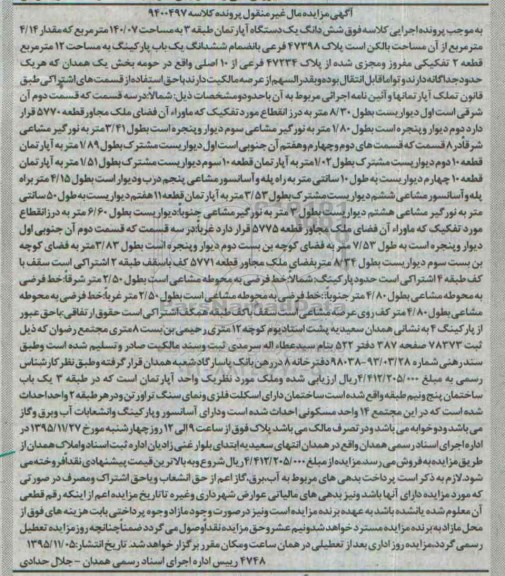 آگهی مزایده مال غیر منقول پرونده کلاسه ۹۴۰۰۴۹۷
به موجب پرونده اجرایی کلاسه فوق شش دانگ یک دستگاه آپارتمان طبقه ۳ به مساحت ۱۴۰/۰۷ متر مربع که مقدار ۴/۱۴
متر مربع از آن مساحت بالکن است پلاک ۴۷۳۹۸ فرعی بانضمام ششدانگ یک باب پارکینگ به مساحت ۱۲ متر مربع
قطعه ۲ تفکیکی مفروز ومجزی شده از پلاک ۴۷۲۳۴ فرعی از ۱۰ اصلی واقع در حومه بخش یک همدان که هریک
حدود جداگانه دارند و تواما قابل انتقال بوده و بقدرالسهم از عرصه مالکیت دارند باحق استفاده از قسمت های اشتراکی طبق
قانون تملک آپارتمانها و آئین نامه اجرائی مربوط به آن باحدود و مشخصات ذیل: شمالاً: درسه قسمت که قسمت دوم آن
شرقی است اول دیواریست بطول ۸/۳۰ متر به درز انقطاع مورد تفکیک که ماوراء آن فضای ملک مجاور قطعه ۵۷۷۰ قرار
دارد دوم دیوار وپنجره است بطول ۱/۸۰ متر به نورگیر مشاعی سوم دیوار وپنجره است بطول ۳/۴۱ متر به نورگیر مشاعی
شرقا: در ۸ قسمت که قسمت های دوم وچهارم وهفتم آن جنوبی است اول دیواریست مشترک بطول ۱/۸۹ متر به آپارتمان
قطعه ۱۰ دوم دیواریست مشترک بطول ۱/۰۲ متر به آپارتمان قطعه ۱۰ سوم دیواریست مشترک بطول ۱/۵۱ متر به آپارتمان
قطعه ۱۰ چهارم دیواریست به طول ۱۰ سانتی متر به راه پله و آسانسور مشاعی پنجم درب ودیوار است بطول ۴/۱۵ متر براه
پله و آسانسور مشاعی ششم دیواریست مشترک بطول ۳/۵۳ متر به آپارتمان قطعه ۱۱ هفتم دیواریست به طول ۵۰ سانتی
متر به نورگیر مشاعی هشتم دیواریست بطول ۳ متر به نورگیر مشاعی جنوباً: دیواریست بطول ۶/۶۰ متر به درز انقطاع
مورد تفکیک که ماوراء آن فضای ملک مجاور قطعه ۵۷۷۵ قرار دارد غرباً: در سه قسمت که قسمت دوم آن جنوبی اول
دیوار وپنجره است به طول ۷/۵۳ متر به فضای کوچه بن بست دوم دیوار وپنجره است بطول ۳/۸۳ متر به فضای کوچه
بن بست سوم دیواریست بطول ۸/۳۴ متر بفضای ملک مجاور قطعه ۵۷۷۱ کف باسقف طبقه ۲ اشتراکی است سقف با
کف طبقه ۴ اشتراکی است حدود پارکینگ: شمالاً: خط فرضی به محوطه مشاعی است بطول ۲/۵۰ متر شرقاً: خط فرضی
به محوطه مشاعی بطول ۴/۸۰ متر جنوباً: خط فرضی به محوطه مشاعی است بطول ۲/۵۰ متر غرباً: خط فرضی به محوطه
مشاعی بطول ۴/۸۰ متر کف روی عرصه مشاعی است حقوق ارتفاقی: باحق عبور
از پارکینگ ۴ به نشانی همدان سعیدیه پشت استادیوم کوچه ۱۲ متری رحیمی بن بست ۸ متری مجتمع رضوان که ذیل
ثبت ۷۸۳۷۳ صفحه ۳۸۷ دفتر ۵۲۲ بنام سیدعطاءاله سرمدی ثبت وسند مالکیت صادر وتسلیم شده است وطبق
سند رهنی شماره ۹۸۰۳۸-۹۳/۰۳/۲۸ دفترخانه ۸ در رهن بانک پاسارگاد شعبه همدان قرار گرفته وطبق نظر کارشناس
رسمی به مبلغ ۴/۴۱۲/۲۰۵/۰۰۰ ریال ارزیابی شده وملک مورد نظر یک واحد آپارتمان است که در طبقه ۳ یک باب
ساختمان پنج ونیم طبقه واقع شده است ساختمان دارای اسکلت فلزی ونمای سنگ تراورتن ودر هر طبقه ۲ واحد احداث
شده است که در این مجتمع ۱۴ واحد مسکونی احداث شده است ودارای آسانسور وپارکینگ وانشعابات آب وبرق وگاز
می باشد ودوخوابه می باشد ودر تصرف مالک می باشد پلاک فوق از ساعت ۹ الی ۱۲ روز چهارشنبه مورخ ۱۳۹۵/۱۱/۲۷ در
اداره اجرای اسناد رسمی همدان واقع در همدان انتهای سعیدیه ابتدای بلوار غنی زادیان اداره ثبت اسناد واملاک همدان از
طریق مزایده به فروش می رسد. مزایده از مبلغ ۴/۴۱۲/۲۰۵/۰۰۰ ریال شروع وبه بالاترین قیمت پیشنهادی نقداً فروخته می
شود. لازم به ذکر است پرداخت بدهی های مربوط به آب، برق، گاز اعم از حق انشعاب ویاحق اشتراک ومصرف در صورتی
که مورد مزایده دارای آنها باشد ونیز بدهی های مالیاتی عوارض شهرداری وغیره تا تاریخ مزایده اعم از اینکه رقم قطعی
آن معلوم شده یانشده باشد به عهده برنده مزایده است ونیز در صورت وجود مازاد وجوه پرداختی بابت هزینه های فوق از
محل مازاد به برنده مزایده مسترد خواهد شد ونیم عشر وحق مزایده نقداً وصول می گردد ضمناً چنانچه روز مزایده تعطیل
رسمی گردد. مزایده روز اداری بعد از تعطیلی در همان ساعت ومکان مقرر برگزار خواهد شد. تاریخ انتشار: ۱۳۹۵/۱۱/۰۵
۴۷۴۸ رییس اداره اجرای اسناد رسمی همدان - جلال حدادی